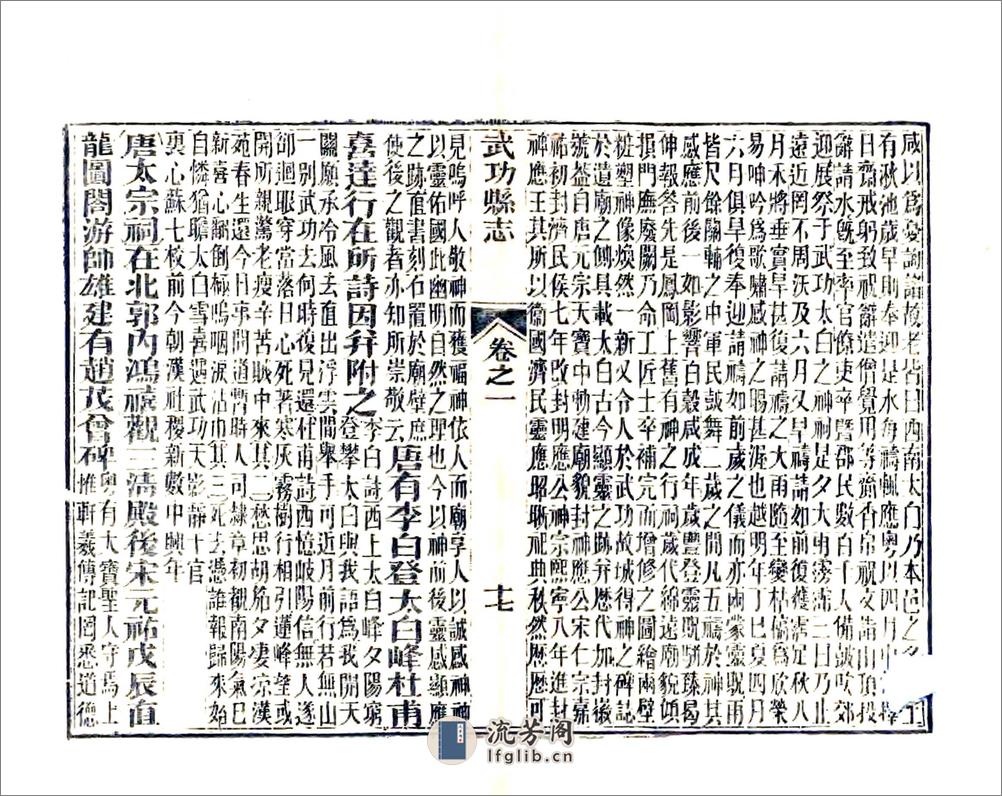 咸以爲憂詢諸故老皆曰西南太白乃本邑之名
有湫池歲旱助奉迎是水每禱輒應粵以四月中擇
日齋戒躬致祝辭遣僧覺用等齎香帛祝文詣山頂投
辭請水旣至率官僚吏卒曁邵民數百千人備鼓吹郊
迎展祭于武功太白之神祠是夕大雨霶霈二日乃止
遠近罔不周浹及六月又旱禱請如前復獲霑足秋八
月禾將垂實旱甚復請禱之大雨踣至變枯槁爲欣榮
易呻吟爲歌嘯感神之賜甚渥也越明年丁巳夏四月
六月俱旱復奉迎請禱如前歲之儀而亦兩蒙靈貺雨
皆尺餘關輔之中軍民鼓舞二歲之間凡五禱於神其
感應前後一如影響百穀咸成年歲豐登靈貺臻曷
伸報荅先是鳳岡上舊有神之行祠歲代綿遠廟貌頹
損門廡廢闕乃命工匠士卒補完而增修之圖繪兩壁
粧塑神像煥然一新又令人於武功故城得神之碑誌
於遺廟之側具載太白古今顯靈之跡并歷代加封徽
號蓋自唐元宗天寶中勅建廟貌封神應公宋仁宗嘉
祐初封濟民侯七年改封明應公神宗熙寧八年進封
神應王其所以衞國濟民靈應昭晰祀典秋然歷歷可
武功縣志 卷之一 十七
見嗚呼人敬神而獲福神依人而廟享人以誠感神神
以靈佑國此幽明自然之理也今以神前後靈感顯應
之跡直書刻石置於廟壁庶
使後之觀者亦知所崇敬云唐有李白登太白峰杜甫
喜達行在所詩因并附之李白詩西上太白峰夕陽窮
登攀太白與我語爲我開天
關願乘泠風去直出浮雲間舉手可近月前行若無山
一別武功去何時復見還杜甫詩西憶岐陽信無人遂
卻迴眼穿當落日心死著寒灰霧樹行相引蓮峰望或
開所親驚老瘦辛苦賊中來其二愁思胡笳夕淒涼漢
苑春生還今日事間道暫時人司隸章初覩南陽氣已
新喜心翻倒極嗚咽淚沾巾其三死去憑誰報歸來始
自憐猶瞻太白雪喜遇武功天影靜千官
裏心蘇七校前今朝漢社稷新數中興年
唐太宗祠在北郭內鴻禧觀三清殿後宋元祐戊辰直
龍圖閣游師雄建有趙茂曾碑粵有大寶聖人守焉上
惟軒羲傳記罔悉道德
流芳阁
lfglib.cn